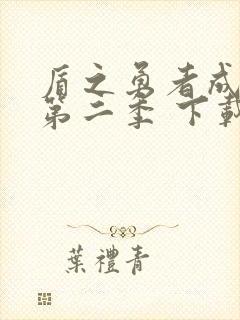 盾之勇者成
第二季 下載
葉禮青